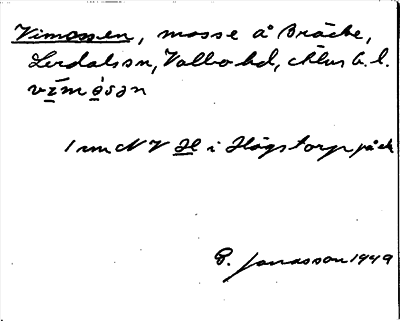 Vimossen, mosse å Bräcke,
Lerdalssn, Valbo hd, Älvs b. l.
vi̲mo̲sən
1 mm NV H i Högstorp på ek
G. Jonasson 1949